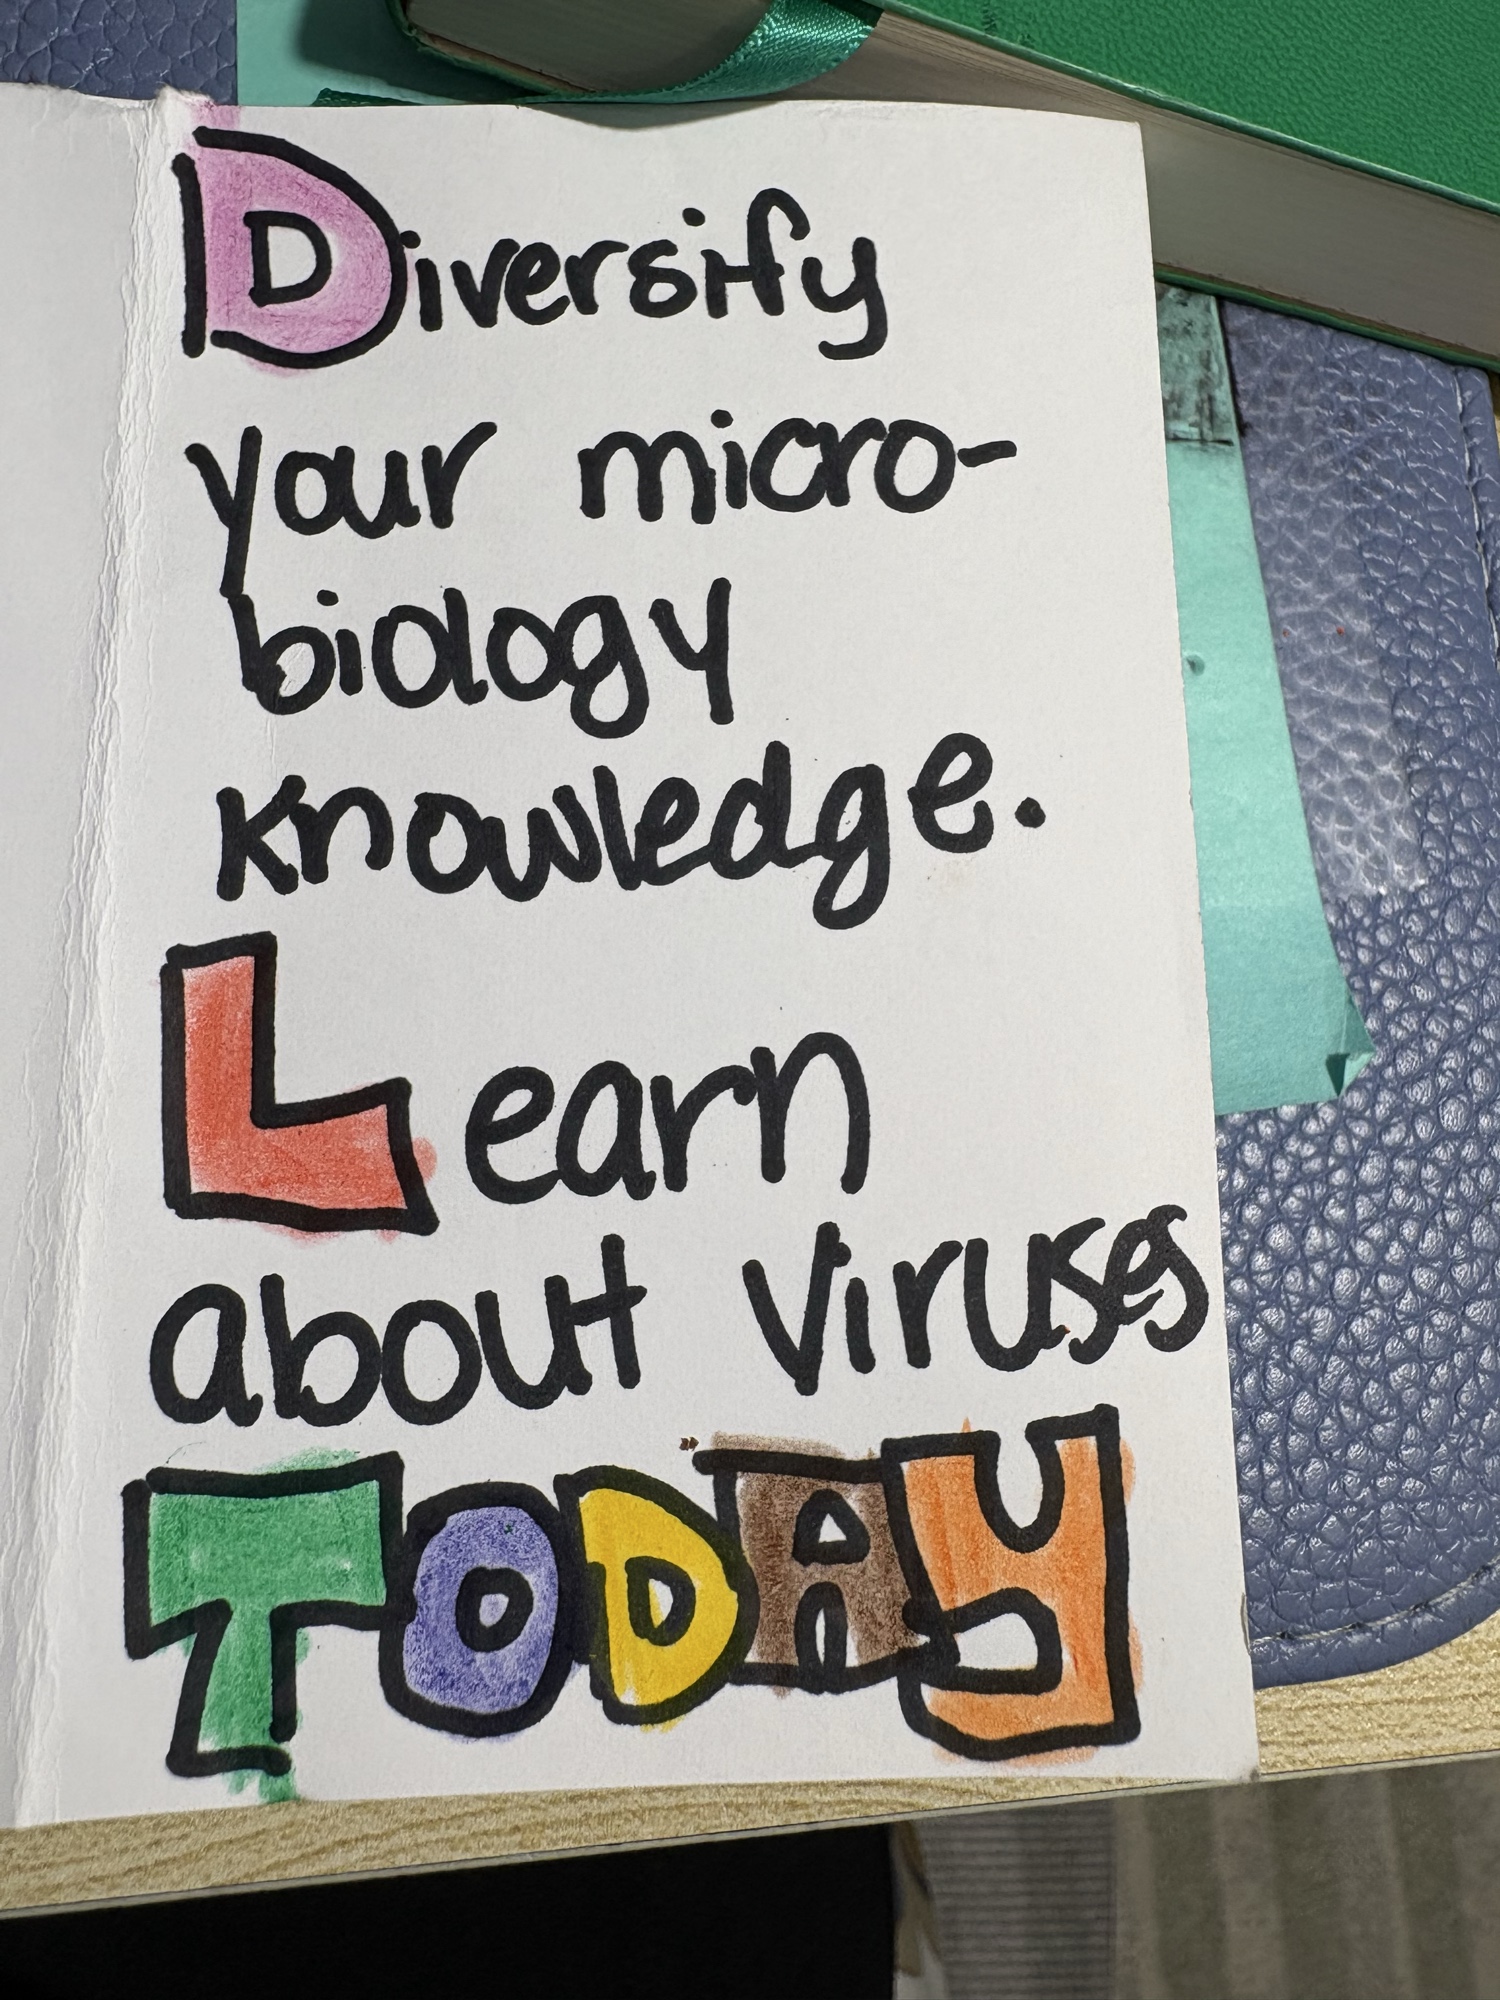 Diversify
your micro-
biology
knowledge.
Learn
about viruses
TODAY